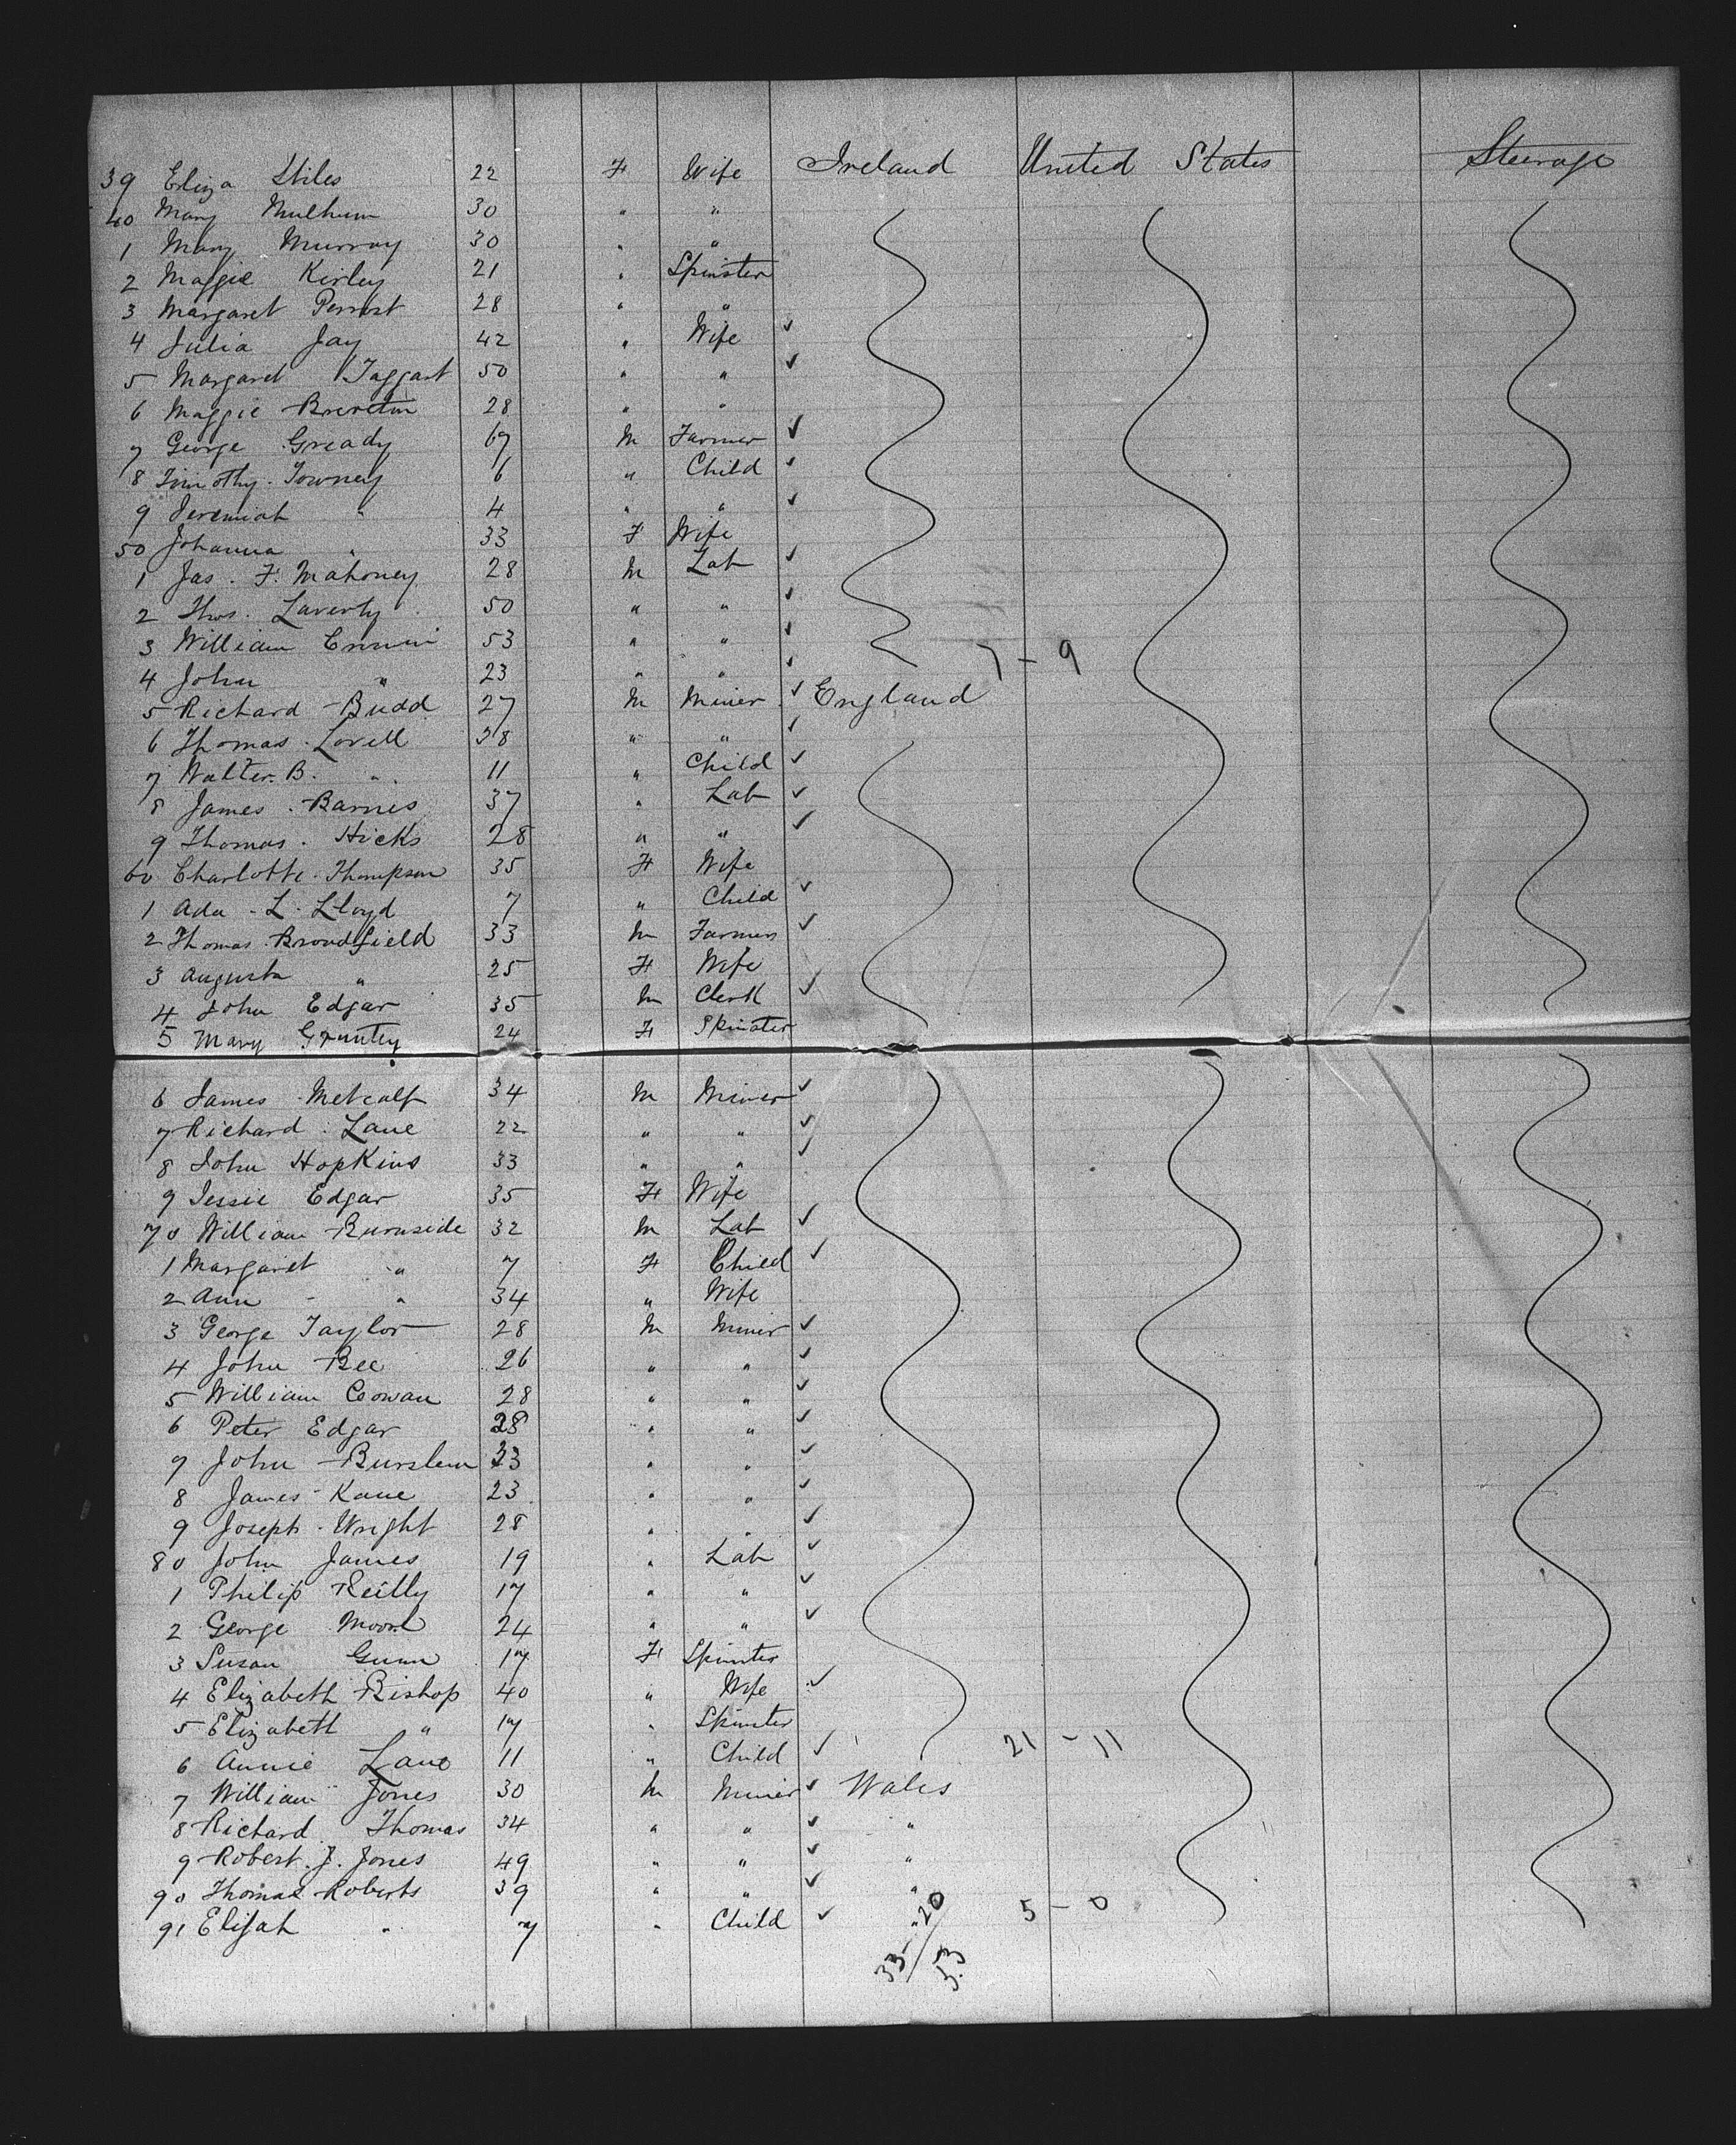 39 Eliza Stiles 22 F Wife Ireland United States Steerage
40 Mary Mulhum 30 " "
1 Mary Murray 30 " "
2 Maggie Kirley 21 " Spinster
3 Margaret 28 " "
4 Julia Jay 42 " Wife ✓
5 Margaret Taggart 50 " " ✓
6 Maggie Brereton 28 " "
7 George Gready 67 M Farmer ✓
8 Timothy Towney 6 " Child ✓
9 Jeremiah " 4 " " ✓
50 Johanna " 33 F Wife
1 Jas. F. Mahoney 28 M Lab ✓
2 Thos. Laverty 50 " " ✓
3 William 53 " " ✓ 7 - 9
4 John " 23 " " ✓
5 Richard Budd 27 M Miner ✓ England
6 Thomas Lovell 38 " " ✓
7 Walter B. " 11 " Child ✓
8 James Barnes 37 " Lab ✓
9 Thomas Hicks 28 " " ✓
60 Charlotte Thompson 35 F Wife
1 Ada L. Lloyd 7 " Child ✓
2 Thomas Broadfield 33 M Farmer ✓
3 Augusta " 25 F Wife
4 John Edgar 35 M Clerk ✓
5 Mary Gruntey 24 F Spinster
6 James Metcalf 34 M Miner ✓
7 Richard Lane 22 " " ✓
8 John Hopkins 33 " " ✓
9 Jessie Edgar 35 F Wife
70 William Burnside 32 M Lab ✓
1 Margaret " 7 F Child ✓
2 Ann " 34 " Wife
3 George Taylor 28 M Miner ✓
4 John Bee 26 " " ✓
5 William Cowan 28 " " ✓
6 Peter Edgar 28 " " ✓
7 John Burslem 33 " " ✓
8 James Kane 23 " " ✓
9 Joseph Wright 28 " " ✓
80 John James 19 " Lab ✓
1 Philip Reilly 17 " " ✓
2 George Moore 24 " " ✓
3 Susan Gunn 17 F Spinster
4 Elizabeth Bishop 40 " Wife ✓
5 Elizabeth " 17 " Spinster
6 Annie Lane 11 " Child ✓ 21 - 11
7 William Jones 30 M Miner ✓ Wales
8 Richard Thomas 34 " " ✓ "
9 Robert J. Jones 49 " " ✓ "
90 Thomas Roberts 39 " " ✓ "
91 Elijah " 7 " Child ✓ " 5 - 0
33 / 20
53